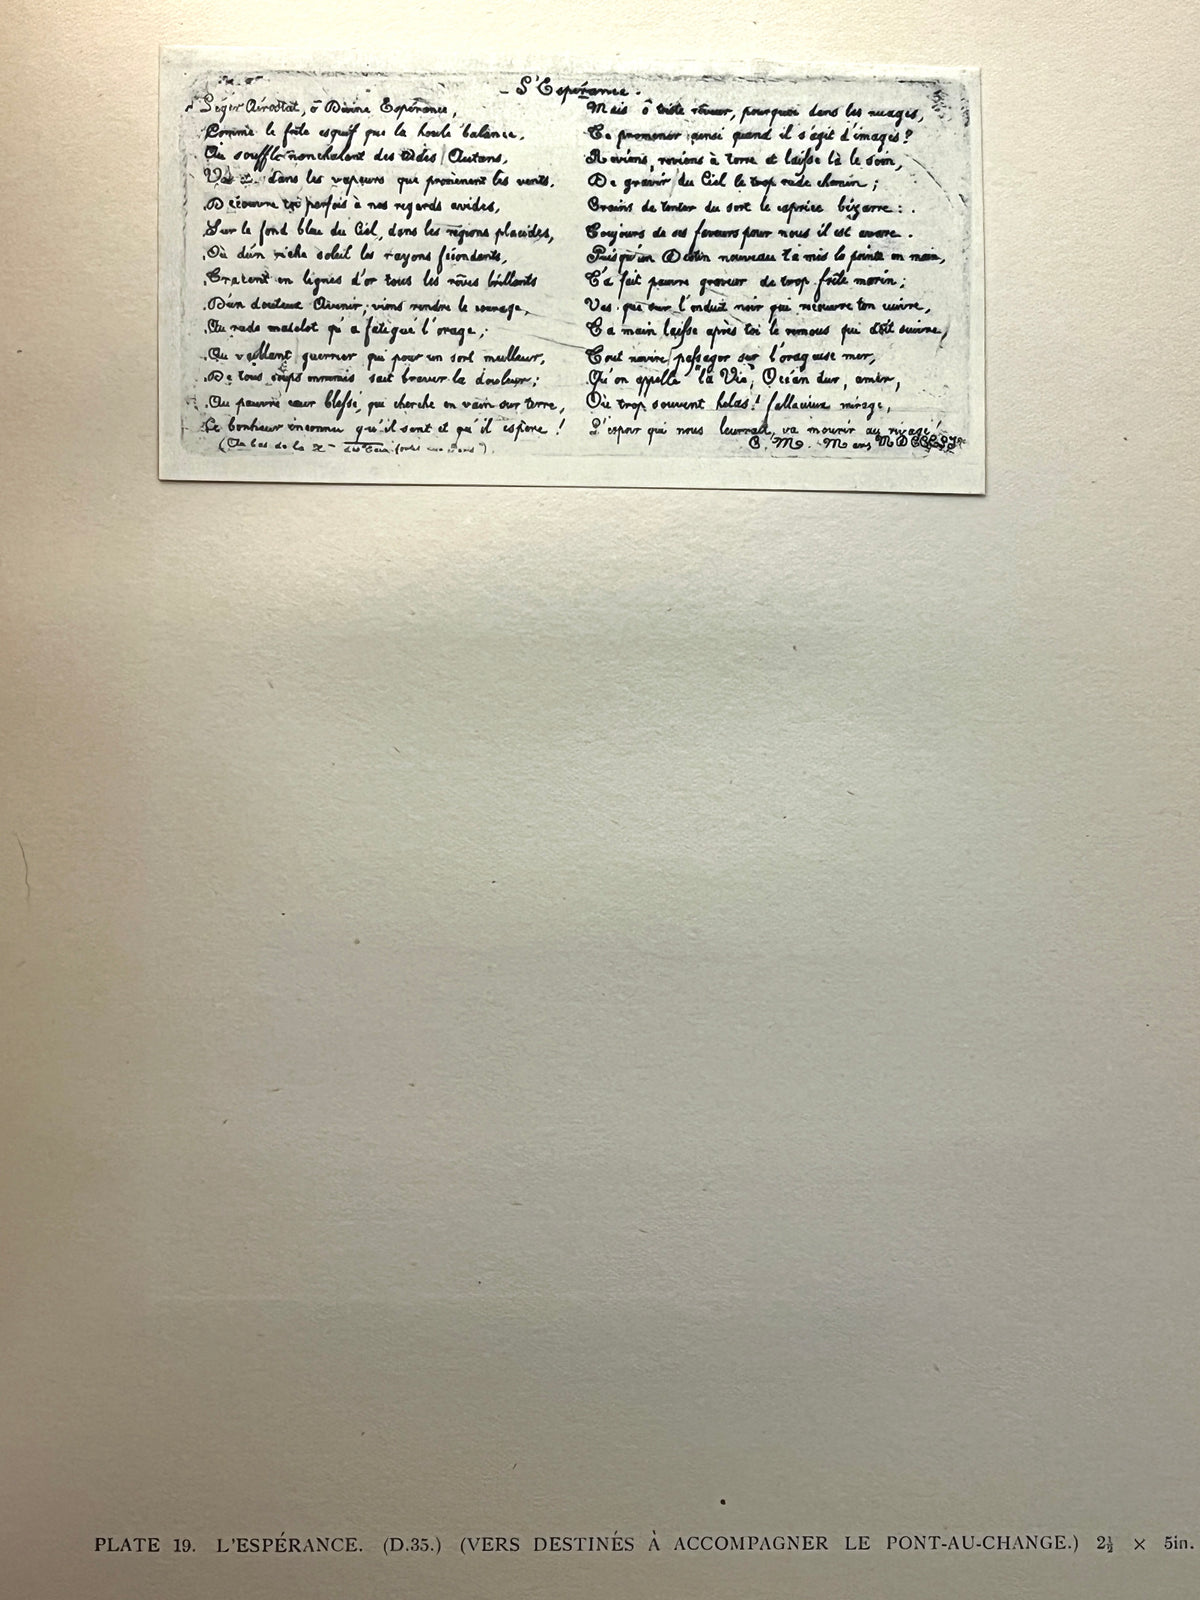 L'Espérance.
Léger Aérostat, ô Divine Espérance,
Comme le frêle esquif que la houle balance,
Au souffle nonchalant des tièdes Autans,
dans les vapeurs que promènent les vents,
Découvre toi parfois à nos regards avides,
Sur le fond bleu du Ciel, dans les régions placides,
Où d'un riche soleil les rayons fécondants,
Tracent en lignes d'or tous les rêves brillants
D'un douteux Avenir; viens rendre le courage,
Au rude matelot qu'a fatigué l'orage;
Au vaillant guerrier qui pour un sort meilleur,
De tous coups ennemis sait braver la douleur;
Au pauvre cœur blessé, qui cherche en vain sur terre,
Ce bonheur inconnu qu'il sent et qu'il espère!
(Au bas de la
Mais ô triste rêveur, pourquoi dans les nuages,
Te promener ainsi quand il s'agit d'images?
Reviens, reviens à terre et laisse là le soin,
De gravir du Ciel le trop rude chemin;
Crains de tenter du sort le caprice bizarre:
Toujours de ses faveurs pour nous il est avare.
Puisqu'un Destin nouveau t'a mis la pointe en main,
T'a fait pauvre graveur de trop frêle marin;
Vas que sur l'enduit noir qui recouvre ton cuivre,
Ta main laisse après toi le remous qui doit suivre,
Tout navire passager sur l'orageuse mer,
Qu'on appelle "la Vie", Océan dur, amer,
Où trop souvent hélas! fallacieux mirage,
L'espoir qui nous leurrait, va mourir au rivage!
C. M.
PLATE 19. L'ESPÉRANCE. (D.35.) (VERS DESTINÉS À ACCOMPAGNER LE PONT-AU-CHANGE.) 2½ × 5in.